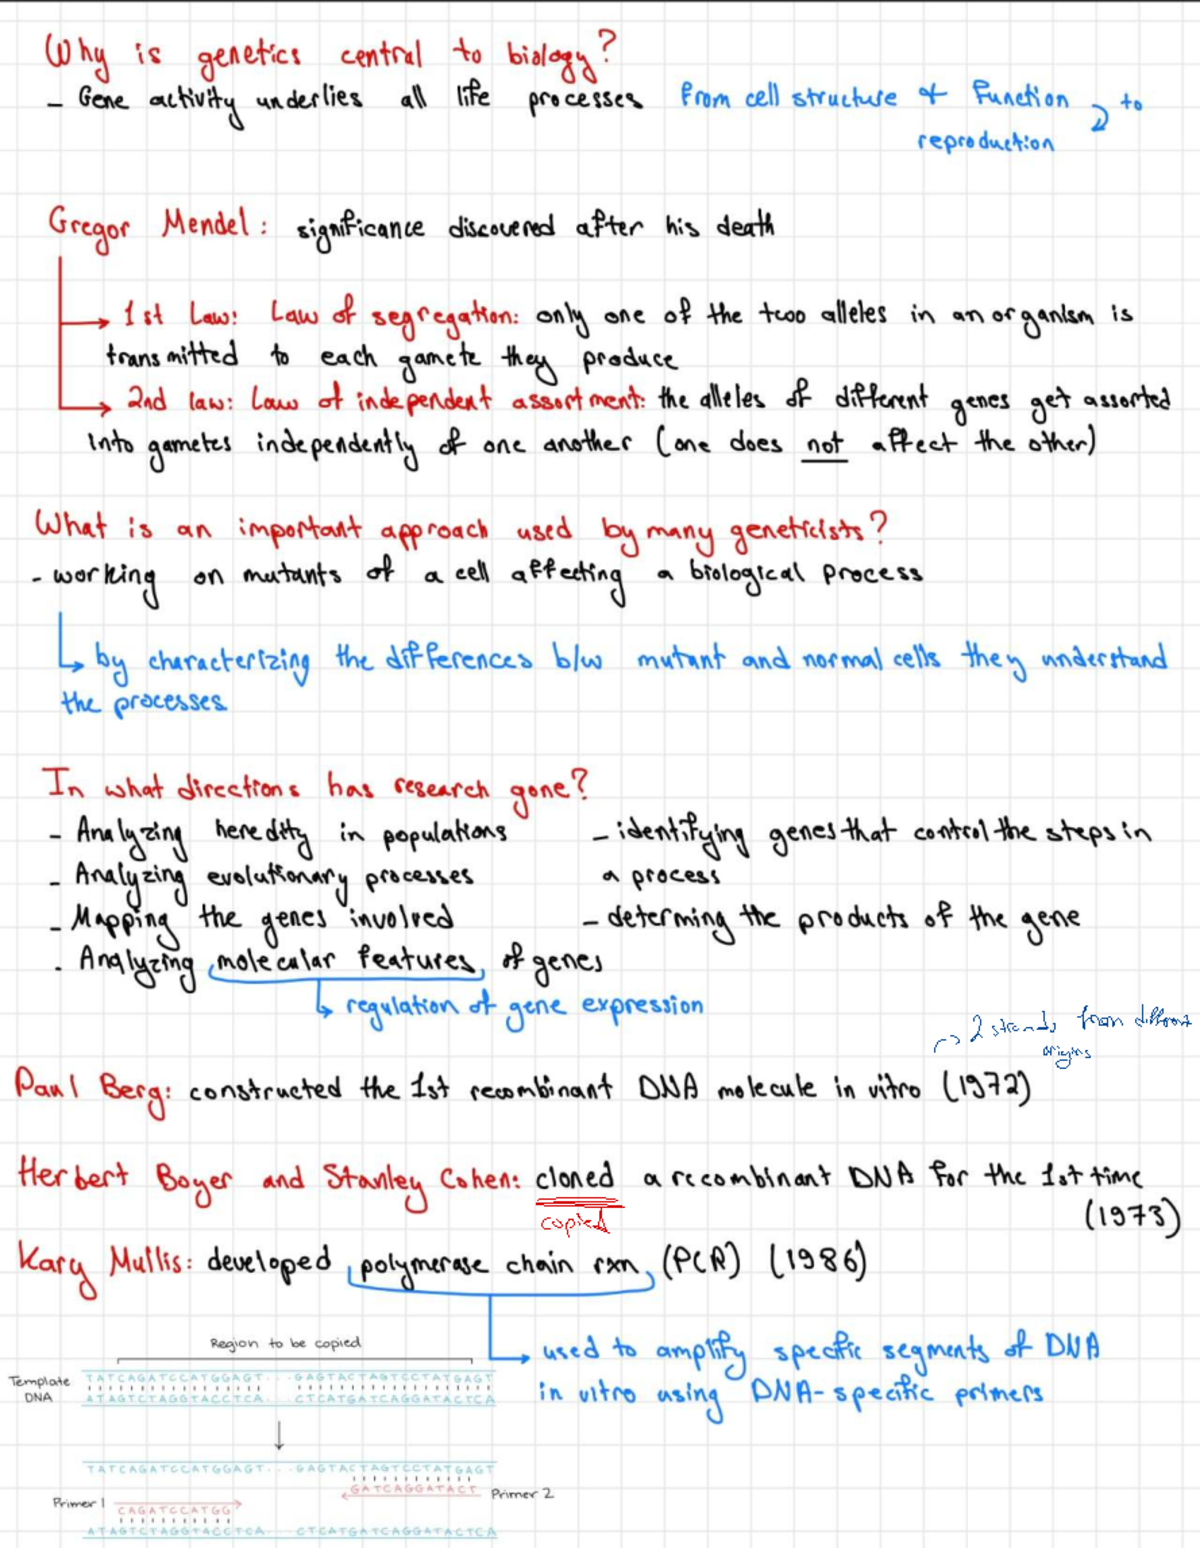 Why is genetics central to biology?
- Gene activity underlies all life processes from cell structure & function to
reproduction
Gregor Mendel: significance discovered after his death
1st Law: Law of segregation: only one of the two alleles in an organism is
transmitted to each gamete they produce
2nd law: Law of independent assortment: the alleles of different genes get assorted
into gametes independently of one another (one does not affect the other)
What is an important approach used by many geneticists?
- working on mutants of a cell affecting a biological process
by characterizing the differences b/w mutant and normal cells they understand
the processes
In what directions has research gone?
- Analyzing heredity in populations
- Analyzing evolutionary processes
- Mapping the genes involved
- Analyzing molecular features of genes
regulation of gene expression
- identifying genes that control the steps in
a process
- determining the products of the gene
2 strands from different
origins
Paul Berg: constructed the 1st recombinant DNA molecule in vitro (1972)
Herbert Boyer and Stanley Cohen: cloned a recombinant DNA for the 1st time
copied
(1973)
Kary Mullis: developed polymerase chain rxn (PCR) (1986)
used to amplify specific segments of DNA
in vitro using DNA-specific primers
Region to be copied
Template
DNA
TATCAGATCCATGGAGT...GAGTACTAGTCCTATGAGT
ATAGTCTAGGTACCTCA...CTCATGATCAGGATACTCA
TATCAGATCCATGGAGT...GAGTACTAGTCCTATGAGT
GATCAGGATACT Primer 2
Primer 1
CAGATCCATGG
ATAGTCTAGGTACCTCA...CTCATGATCAGGATACTCA